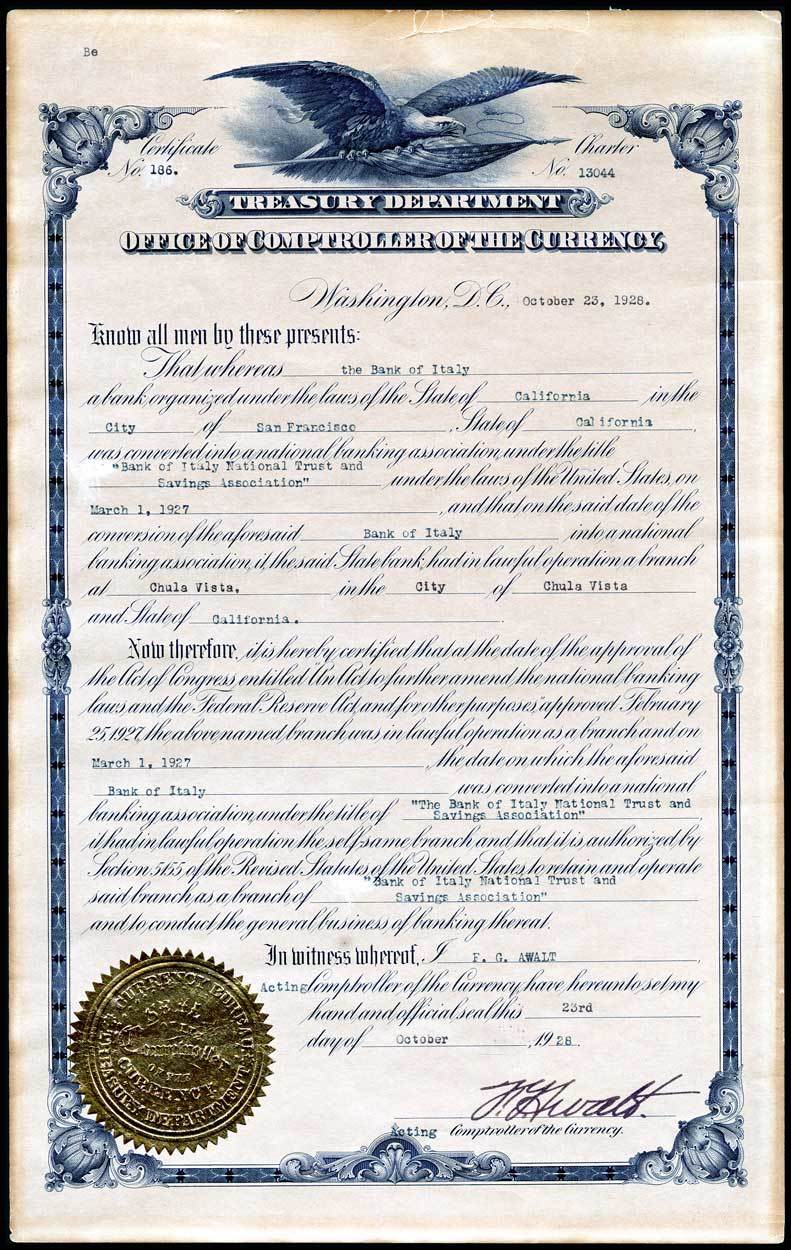 Be
Certificate
No. 186.
Charter
No. 13044
TREASURY DEPARTMENT
OFFICE OF COMPTROLLER OF THE CURRENCY,
Washington, D.C., October 23, 1928.
Know all men by these presents:
That whereas the Bank of Italy
a bank organized under the laws of the State of California in the
City of San Francisco, State of California,
was converted into a national banking association, under the title
"Bank of Italy National Trust and
Savings Association" under the laws of the United States, on
March 1, 1927, and that on the said date of the
conversion of the aforesaid Bank of Italy into a national
banking association, it, the said State bank, had in lawful operation a branch
at Chula Vista, in the City of Chula Vista
and State of California.
Now therefore, it is hereby certified that at the date of the approval of
the Act of Congress, entitled "An Act to further amend the national banking
laws, and the Federal Reserve Act, and for other purposes," approved February
25, 1927, the above named branch, was in lawful operation as a branch and on
March 1, 1927, the date on which the aforesaid
Bank of Italy was converted into a national
banking association, under the title of "The Bank of Italy National Trust and
Savings Association",
it had in lawful operation, the selfsame branch and that it is authorized by
Section 5155 of the Revised Statutes of the United States, to retain and operate
said branch as a branch of "Bank of Italy National Trust and
Savings Association"
and to conduct the general business of banking thereat.
In witness whereof, I F. G. AWALT,
Acting Comptroller of the Currency, have hereunto set my
hand and official seal this 23rd
day of October, 1928.
CURRENCY BUREAU
Seal
OF THE
Comptroller
OF THE
CURRENCY
TREASURY DEPARTMENT
F. G. Awalt.
Acting Comptroller of the Currency.